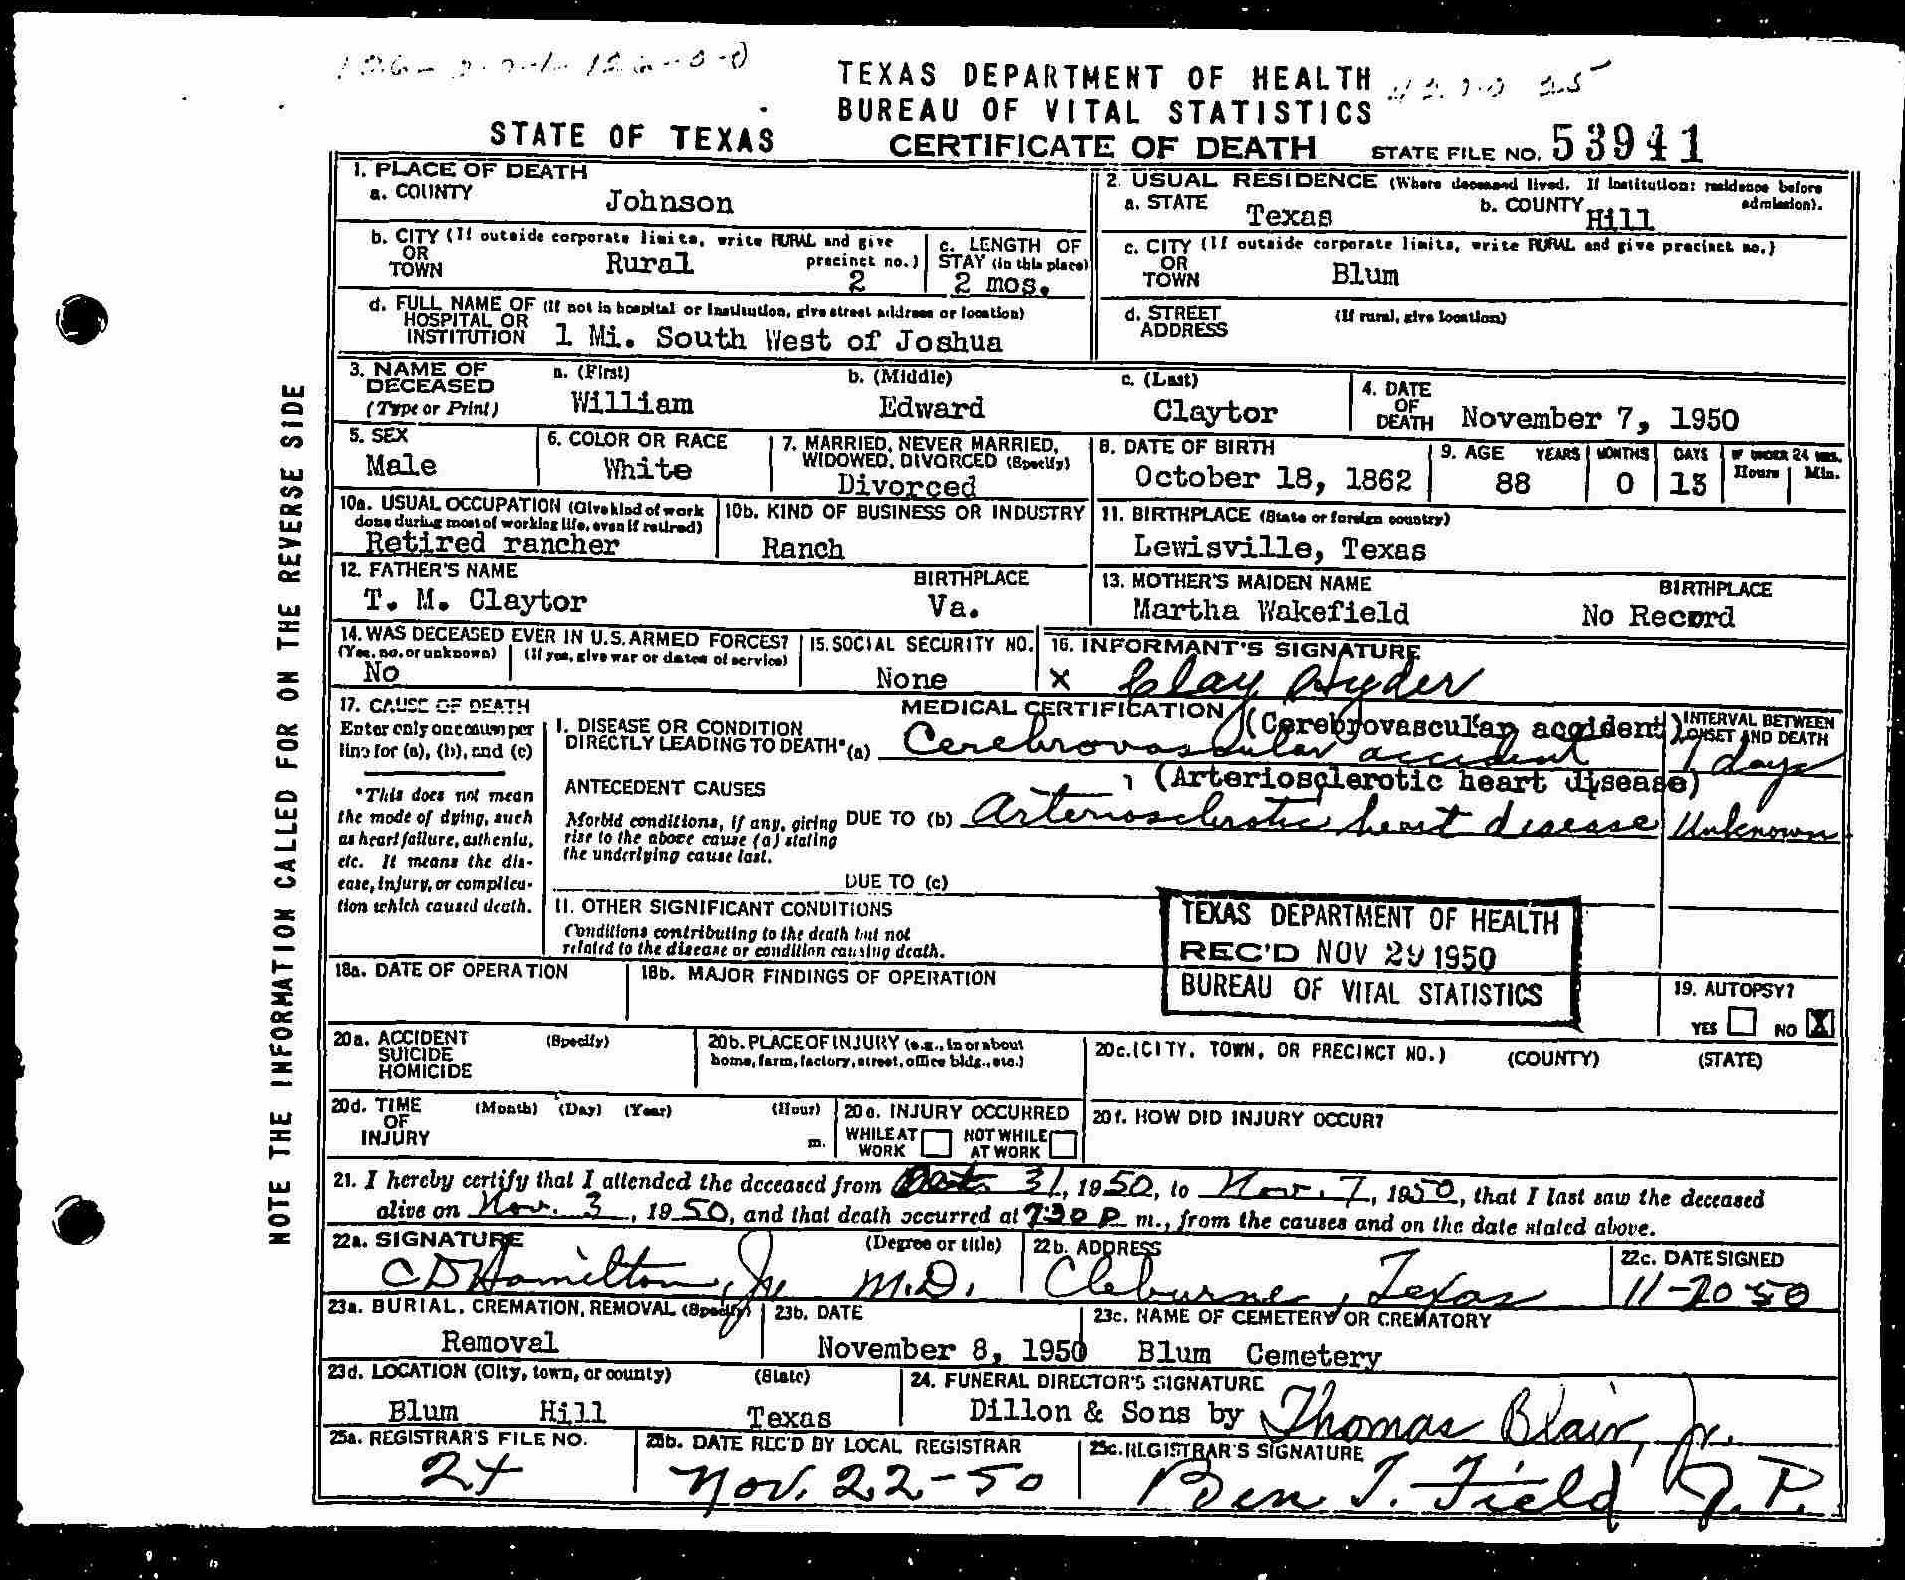 TEXAS DEPARTMENT OF HEALTH
BUREAU OF VITAL STATISTICS
STATE OF TEXAS
CERTIFICATE OF DEATH STATE FILE NO. 53941
NOTE THE INFORMATION CALLED FOR ON THE REVERSE SIDE
1. PLACE OF DEATH
a. COUNTY Johnson
2. USUAL RESIDENCE (Where deceased lived. If institution: residence before admission).
a. STATE Texas b. COUNTY Hill
b. CITY (If outside corporate limits, write RURAL and give precinct no.)
OR
TOWN Rural 2
c. LENGTH OF
STAY (in this place)
2 mos.
c. CITY (If outside corporate limits, write RURAL and give precinct no.)
OR
TOWN Blum
d. FULL NAME OF (If not in hospital or institution, give street address or location)
HOSPITAL OR
INSTITUTION 1 Mi. South West of Joshua
d. STREET (If rural, give location)
ADDRESS
3. NAME OF DECEASED (Type or Print)
a. (First) b. (Middle) c. (Last)
William Edward Claytor
4. DATE OF DEATH November 7, 1950
5. SEX
Male
6. COLOR OR RACE
White
7. MARRIED, NEVER MARRIED,
WIDOWED, DIVORCED (Specify)
Divorced
8. DATE OF BIRTH
October 18, 1862
9. AGE YEARS MONTHS DAYS IF UNDER 24 HRS. Hours Min.
88 0 13
10a. USUAL OCCUPATION (Give kind of work
done during most of working life, even if retired)
Retired rancher
10b. KIND OF BUSINESS OR INDUSTRY
Ranch
11. BIRTHPLACE (State or foreign country)
Lewisville, Texas
12. FATHER'S NAME BIRTHPLACE
T. M. Claytor Va.
13. MOTHER'S MAIDEN NAME BIRTHPLACE
Martha Wakefield No Record
14. WAS DECEASED EVER IN U.S. ARMED FORCES?
(Yes, no, or unknown) (If yes, give war or dates of service)
No
15. SOCIAL SECURITY NO.
None
16. INFORMANT'S SIGNATURE
X Clay Hyder
17. CAUSE OF DEATH
Enter only one cause per
line for (a), (b), and (c)
*This does not mean
the mode of dying, such
as heart failure, asthenia,
etc. It means the dis-
ease, injury, or complica-
tion which caused death.
MEDICAL CERTIFICATION
I. DISEASE OR CONDITION
DIRECTLY LEADING TO DEATH* (a) Cerebrovascular accident
(Cerebrovascular accident)
INTERVAL BETWEEN
ONSET AND DEATH
7 days
ANTECEDENT CAUSES
(Arteriosclerotic heart disease)
Morbid conditions, if any, giving
rise to the above cause (a) stating
the underlying cause last.
DUE TO (b) Arteriosclerotic heart disease Unknown
DUE TO (c)
II. OTHER SIGNIFICANT CONDITIONS
Conditions contributing to the death but not
related to the disease or condition causing death.
TEXAS DEPARTMENT OF HEALTH
REC'D NOV 29 1950
BUREAU OF VITAL STATISTICS
18a. DATE OF OPERATION
18b. MAJOR FINDINGS OF OPERATION
19. AUTOPSY?
YES NO X
20a. ACCIDENT (Specify)
SUICIDE
HOMICIDE
20b. PLACE OF INJURY (e.g., in or about
home, farm, factory, street, office bldg., etc.)
20c. (CITY, TOWN, OR PRECINCT NO.) (COUNTY) (STATE)
20d. TIME (Month) (Day) (Year) (Hour)
OF
INJURY m.
20e. INJURY OCCURRED
WHILE AT WORK NOT WHILE AT WORK
20f. HOW DID INJURY OCCUR?
21. I hereby certify that I attended the deceased from Oct. 31, 1950, to Nov. 7, 1950, that I last saw the deceased
alive on Nov. 3, 1950, and that death occurred at 7:30 P m., from the causes and on the date stated above.
22a. SIGNATURE (Degree or title)
C D Hamilton, Jr. M.D.
22b. ADDRESS
Cleburne, Texas
22c. DATE SIGNED
11-20-50
23a. BURIAL, CREMATION, REMOVAL (Specify)
Removal
23b. DATE
November 8, 1950
23c. NAME OF CEMETERY OR CREMATORY
Blum Cemetery
23d. LOCATION (City, town, or county) (State)
Blum Hill Texas
24. FUNERAL DIRECTOR'S SIGNATURE
Dillon & Sons by Thomas Blair, Jr.
25a. REGISTRAR'S FILE NO.
24
25b. DATE REC'D BY LOCAL REGISTRAR
Nov. 22-50
25c. REGISTRAR'S SIGNATURE
Ben T. Field J. P.